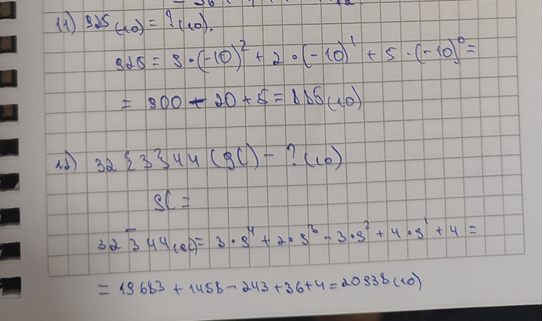 11) 925(10) = ?(10).
925 = 9·(-10)² + 2·(-10)¹ + 5·(-10)⁰ =
= 900 - 20 + 5 = 885(10)
12) 32{3}44(9C) - ?(10)
9C =
32 3̅ 44(9C) = 3·9⁴ + 2·9³ - 3·9² + 4·9¹ + 4 =
= 19683 + 1458 - 243 + 36 + 4 = 20938(10)